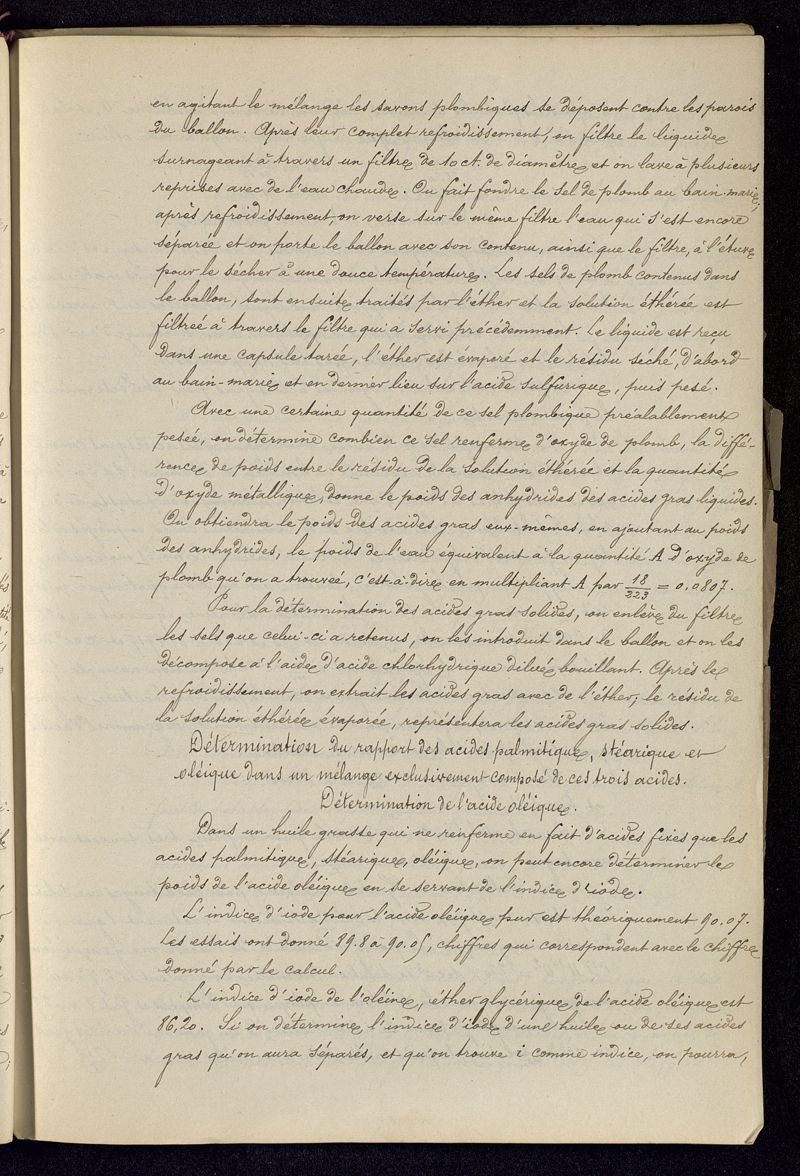 en agitant le mélange les savons plombiques se déposent contre les parois
du ballon. Après leur complet refroidissement, on filtre le liquide
surnageant à travers un filtre de 10 ct. de diamètre et on lave à plusieurs
reprises avec de l'eau chaude. On fait fondre le sel de plomb au bain-marie;
après refroidissement, on verse sur le même filtre l'eau qui s'est encore
séparée et on porte le ballon avec son contenu, ainsi que le filtre, à l'étuve
pour le sécher à une douce température. Les sels de plomb contenus dans
le ballon, sont ensuite traités par l'éther et la solution éthérée est
filtrée à travers le filtre qui a servi précédemment. Le liquide est reçu
dans une capsule tarée, l'éther est évaporé et le résidu séché, d'abord
au bain-marie et en dernier lieu sur l'acide sulfurique, puis pesé.
Avec une certaine quantité de ce sel plombique préalablement
pesée, on détermine combien ce sel renferme d'oxyde de plomb, la diffé-
rence de poids entre le résidu de la solution éthérée et la quantité
d'oxyde métallique, donne le poids des anhydrides des acides gras liquides.
On obtiendra le poids des acides gras eux-mêmes, en ajoutant au poids
des anhydrides, le poids de l'eau équivalent à la quantité A d'oxyde de
plomb qu'on a trouvée, c'est-à-dire en multipliant A par 18/223 = 0,0807.
Pour la détermination des acides gras solides, on enlève du filtre
les sels que celui-ci a retenus, on les introduit dans le ballon et on les
décompose à l'aide d'acide chlorhydrique dilué bouillant. Après le
refroidissement, on extrait les acides gras avec de l'éther; le résidu de
la solution éthérée évaporée, représentera les acides gras solides.
Détermination du rapport des acides palmitique, stéarique et
oléique dans un mélange exclusivement composé de ces trois acides.
Détermination de l'acide oléique.
Dans un huile grasse qui ne renferme en fait d'acides fixes que les
acides palmitique, stéarique, oléique, on peut encore déterminer le
poids de l'acide oléique en se servant de l'indice d'iode.
L'indice d'iode pour l'acide oléique pur est théoriquement 90.07.
Les essais ont donné 89.8 à 90.05, chiffres qui correspondent avec le chiffre
donné par le calcul.
L'indice d'iode de l'oléine, éther glycérique de l'acide oléique est
86,20. Si on détermine l'indice d'iode d'une huile ou de ses acides
gras qu'on aura séparés, et qu'on trouve i comme indice, on pourra,